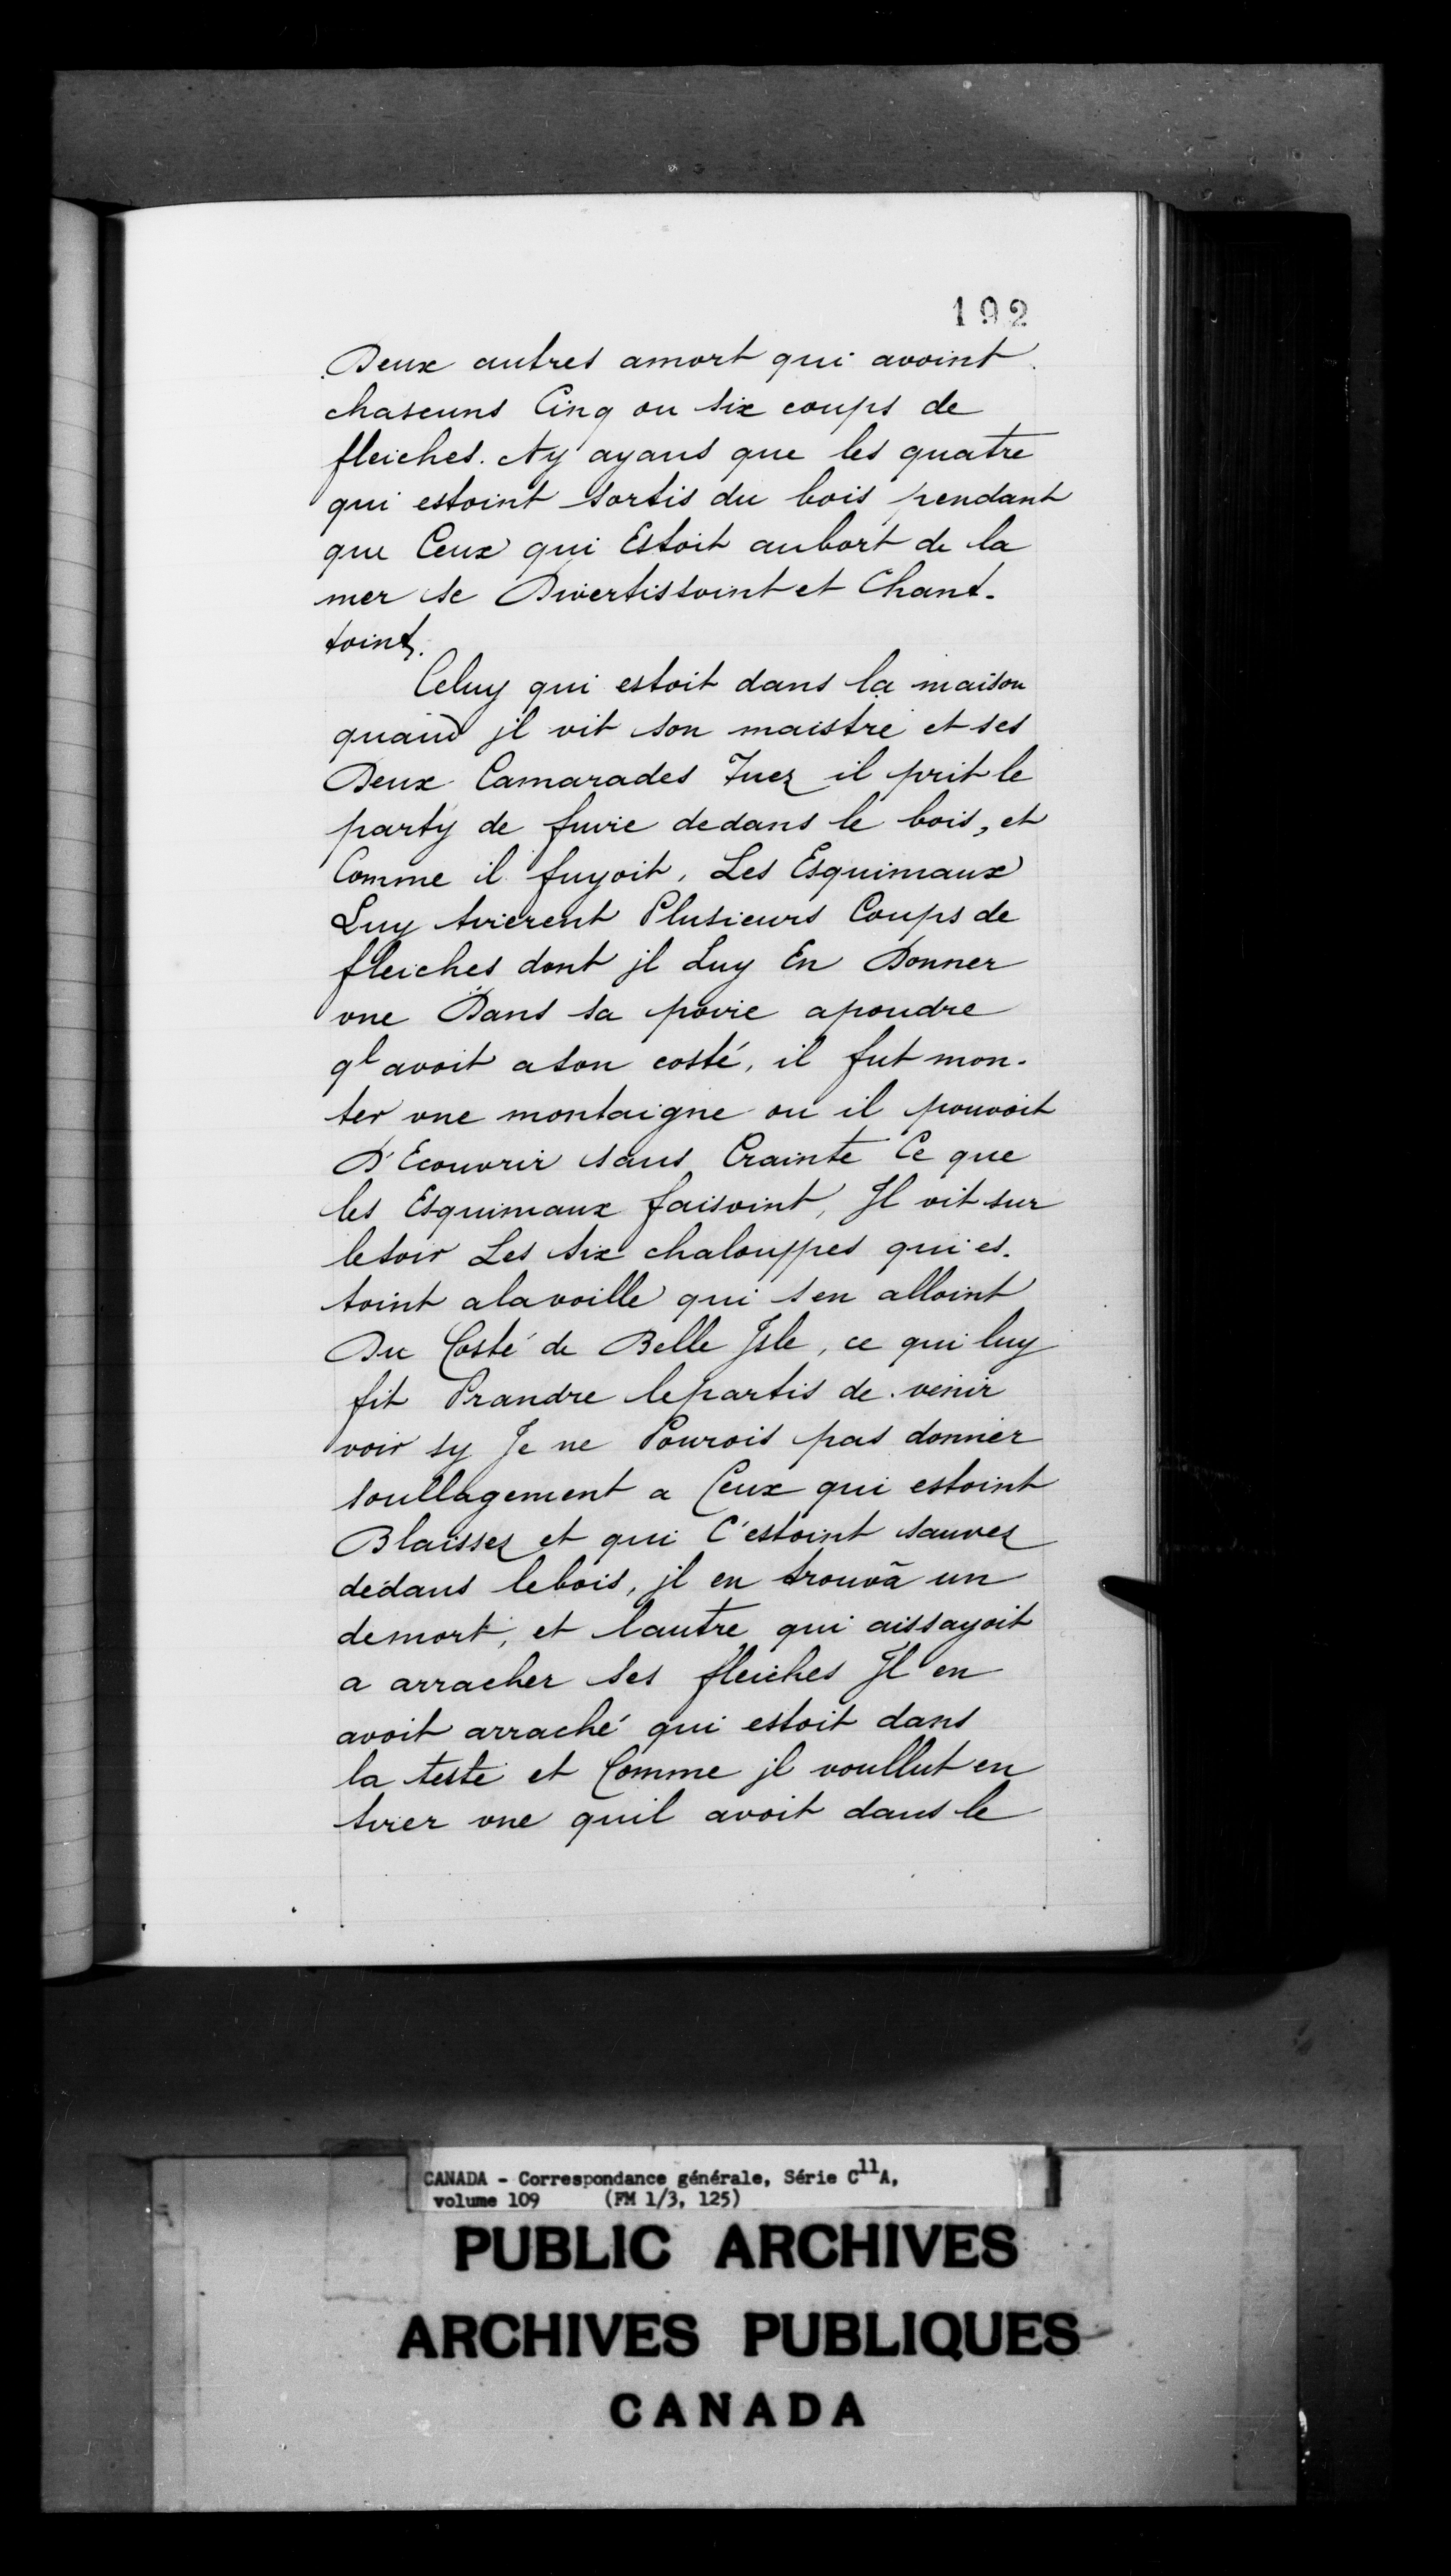 192
Deux autres amort qui avoint
chascuns Cinq ou six coups de
fleiches. Ny ayans que les quatre
qui estoint sortis du bois pendant
que Ceux qui Estoit aubort de la
mer se Divertissoint et Chant-
toint.
Celuy qui estoit dans la maison
quand jl vit son maistre et ses
Deux Camarades Tuez il prit le
party de fuire dedans le bois, et
Comme il fuyoit, Les Esquimaux
Luy tirerent Plusieurs Coups de
fleiches dont jl Luy En Donner
une Dans sa poire apoudre
ql avoit a son costé, il fut mon-
ter une montaigne ou il pouvoit
D'Ecouvrir sans Crainte Ce que
les Esquimaux faisoint, Jl vit sur
lesoir Les six chalouppes qui es-
toint alavoille qui s'en alloint
Du Costé de Belle Jsle, ce qui luy
fit Prandre lepartis de venir
voir sy Je ne Pourois pas donner
soullagement a Ceux qui estoint
Blaissez et qui C'estoint sauvez
dedans lebois, jl en trouva un
demort, et lautre qui aissayoit
a arracher ses fleiches Jl en
avoit arraché qui estoit dans
la teste et Comme jl voullut en
tirer une quil avoit dans le
CANADA - Correspondance générale, Série C11A,
volume 109 (FM 1/3, 125)
PUBLIC ARCHIVES
ARCHIVES PUBLIQUES
CANADA